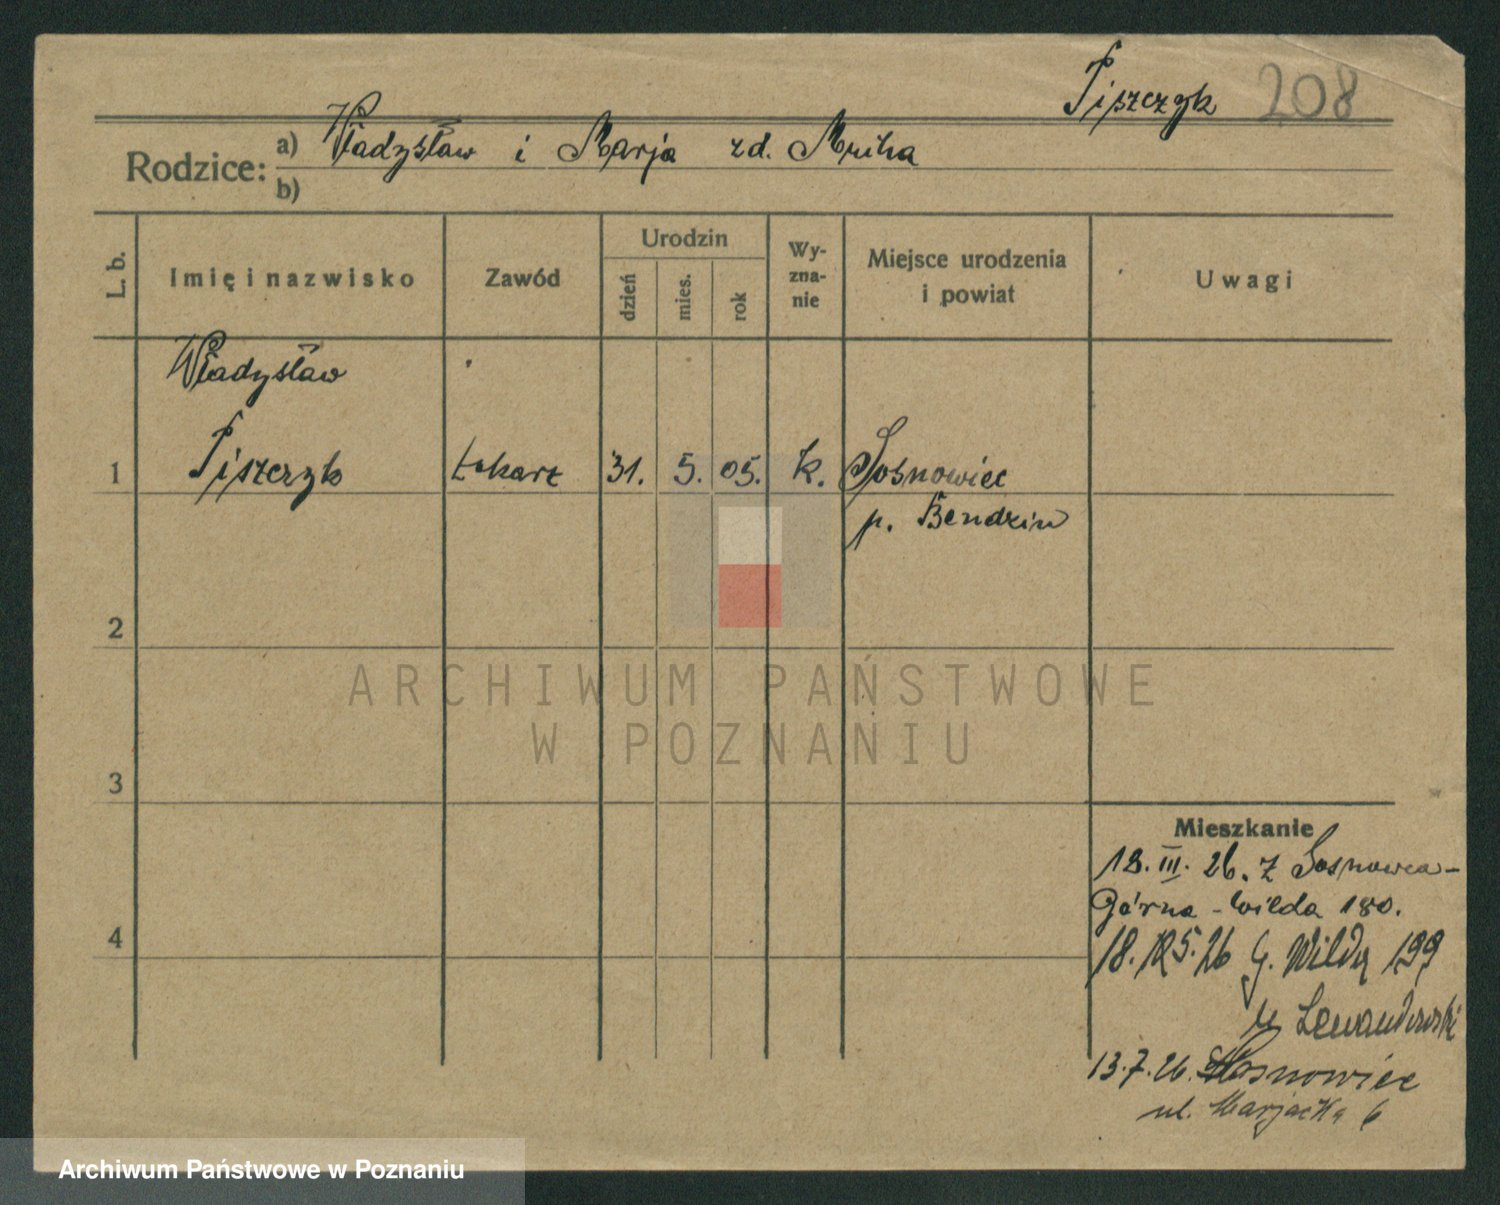 Piszczyk 208
Rodzice: a) Władysław i Marja zd. Mucha
b)
L. b. Imię i nazwisko Zawód Urodzin dzień mies. rok Wy-zna-nie Miejsce urodzenia i powiat Uwagi
Władysław
1 Piszczyk 31. 5. 05. k. Sosnowiec
p. Bendzin
2
ARCHIWUM PAŃSTWOWE
W POZNANIU
3
Mieszkanie
18. III. 26. z Sosnowca-
Górna-Wilda 180.
4
18. 5. 26 G. Wilda 199
u Lewandowski
13.7.26. Sosnowiec
ul. Marjacka 6
Archiwum Państwowe w Poznaniu